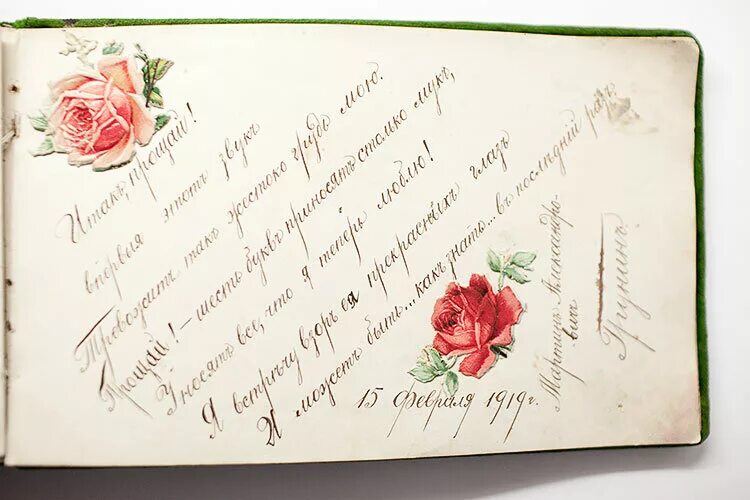 Итакъ, прощай!
впервыя этотъ звукъ
Тревожитъ такъ жестоко грудь мою.
Прощай! – шесть буквъ приносятъ столько мукъ,
Уносятъ все, что я теперь люблю!
Я встрѣчу взоръ ея прекрасныхъ глазъ
И можетъ быть... какъ знать... въ послѣдній разъ
15 февраля 1919 г.
Мартинъ Александро-
вичъ
Грунинъ